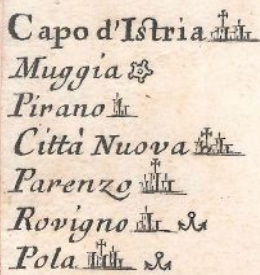 Capo d'Istria
Muggia
Pirano
Città Nuova
Parenzo
Rovigno
Pola